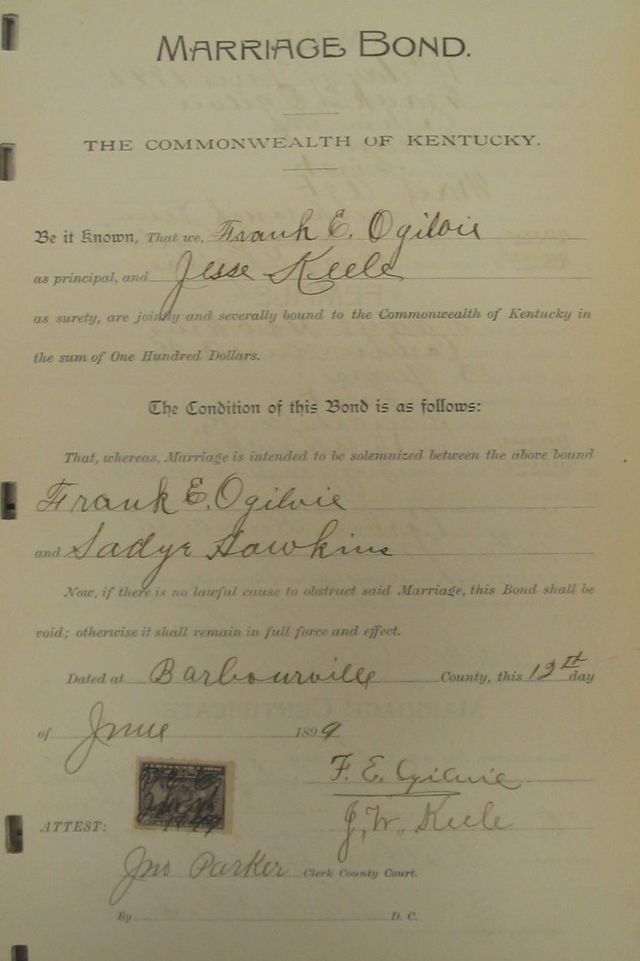 MARRIAGE BOND.
THE COMMONWEALTH OF KENTUCKY.
Be it Known, That we, Frank E. Ogilvie
as principal, and Jesse Keele
as surety, are jointly and severally bound to the Commonwealth of Kentucky in
the sum of One Hundred Dollars.
The Condition of this Bond is as follows:
That, whereas, Marriage is intended to be solemnized between the above bound
Frank E. Ogilvie
and Sadye Hawkins
Now, if there is no lawful cause to obstruct said Marriage, this Bond shall be
void; otherwise it shall remain in full force and effect.
Dated at Barbourville County, this 13th day
of June 1899
F. E. Ogilvie
J. W. Keele
ATTEST:
Jno Parker Clerk County Court.
By D. C.